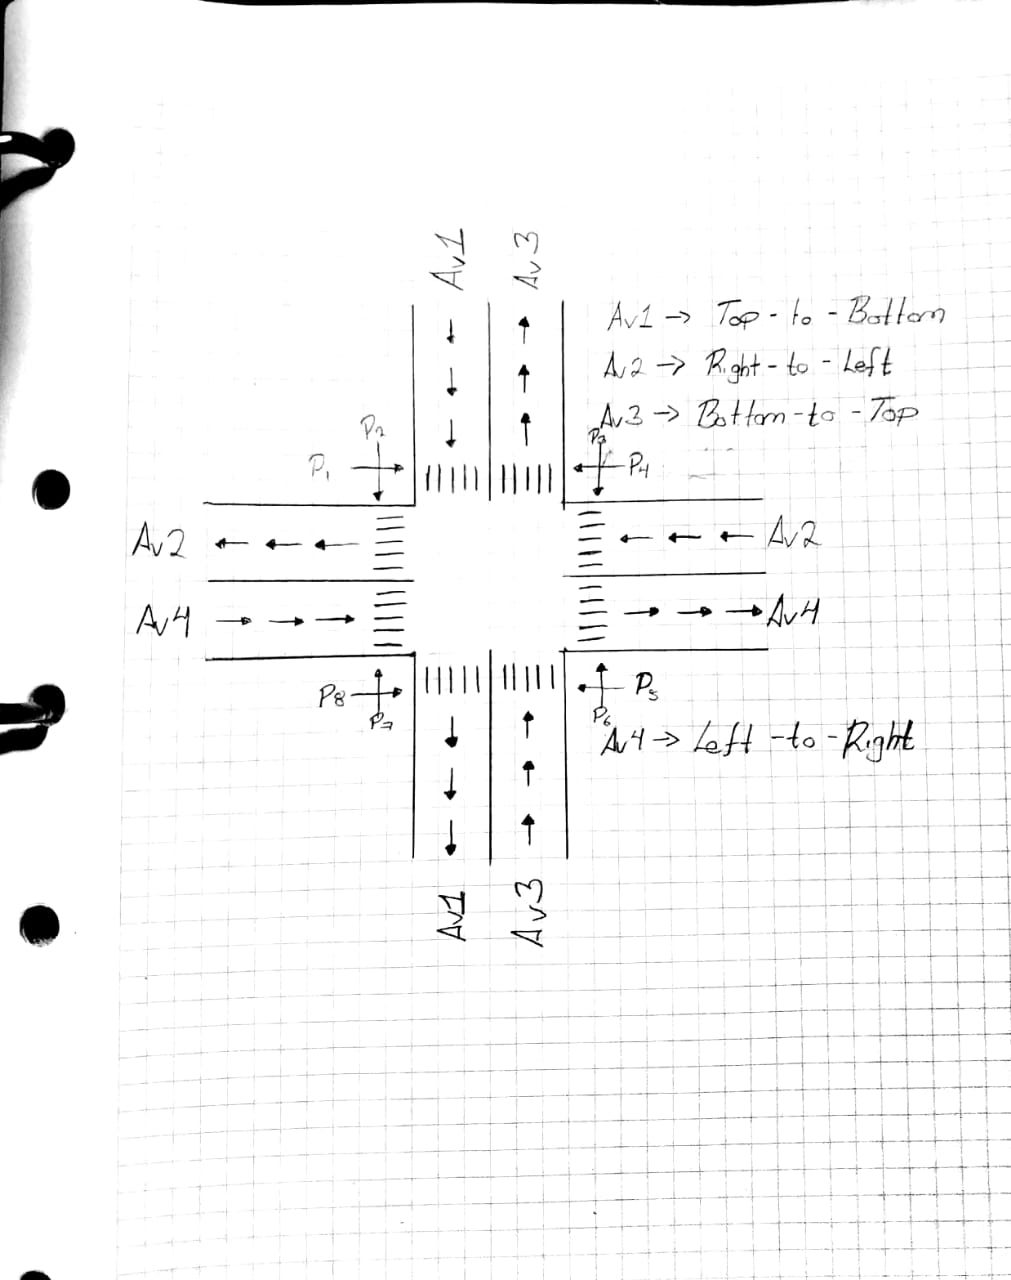 Av1
Av3
Av1 → Top-to-Bottom
Av2 → Right-to-Left
Av3 → Bottom-to-Top
P2
P3
P1
P4
Av2
Av2
Av4
Av4
P8
P7
P5
P6
Av4 → Left-to-Right
Av1
Av3